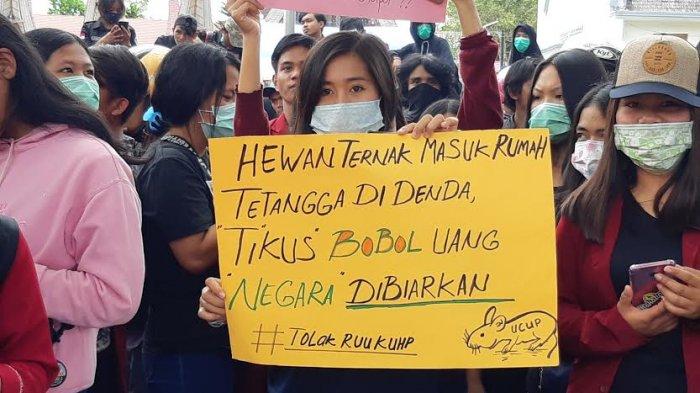 HEWAN TERNAK MASUK RUMAH
TETANGGA DI DENDA,
"TIKUS" BOBOL UANG
"NEGARA" DIBIARKAN
#TOLAK RUUKUHP
UCUP